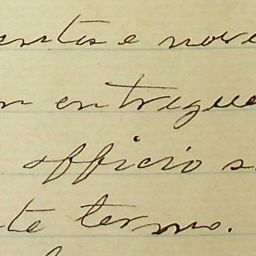 entos e nove
em entregue
officio s
te termo.